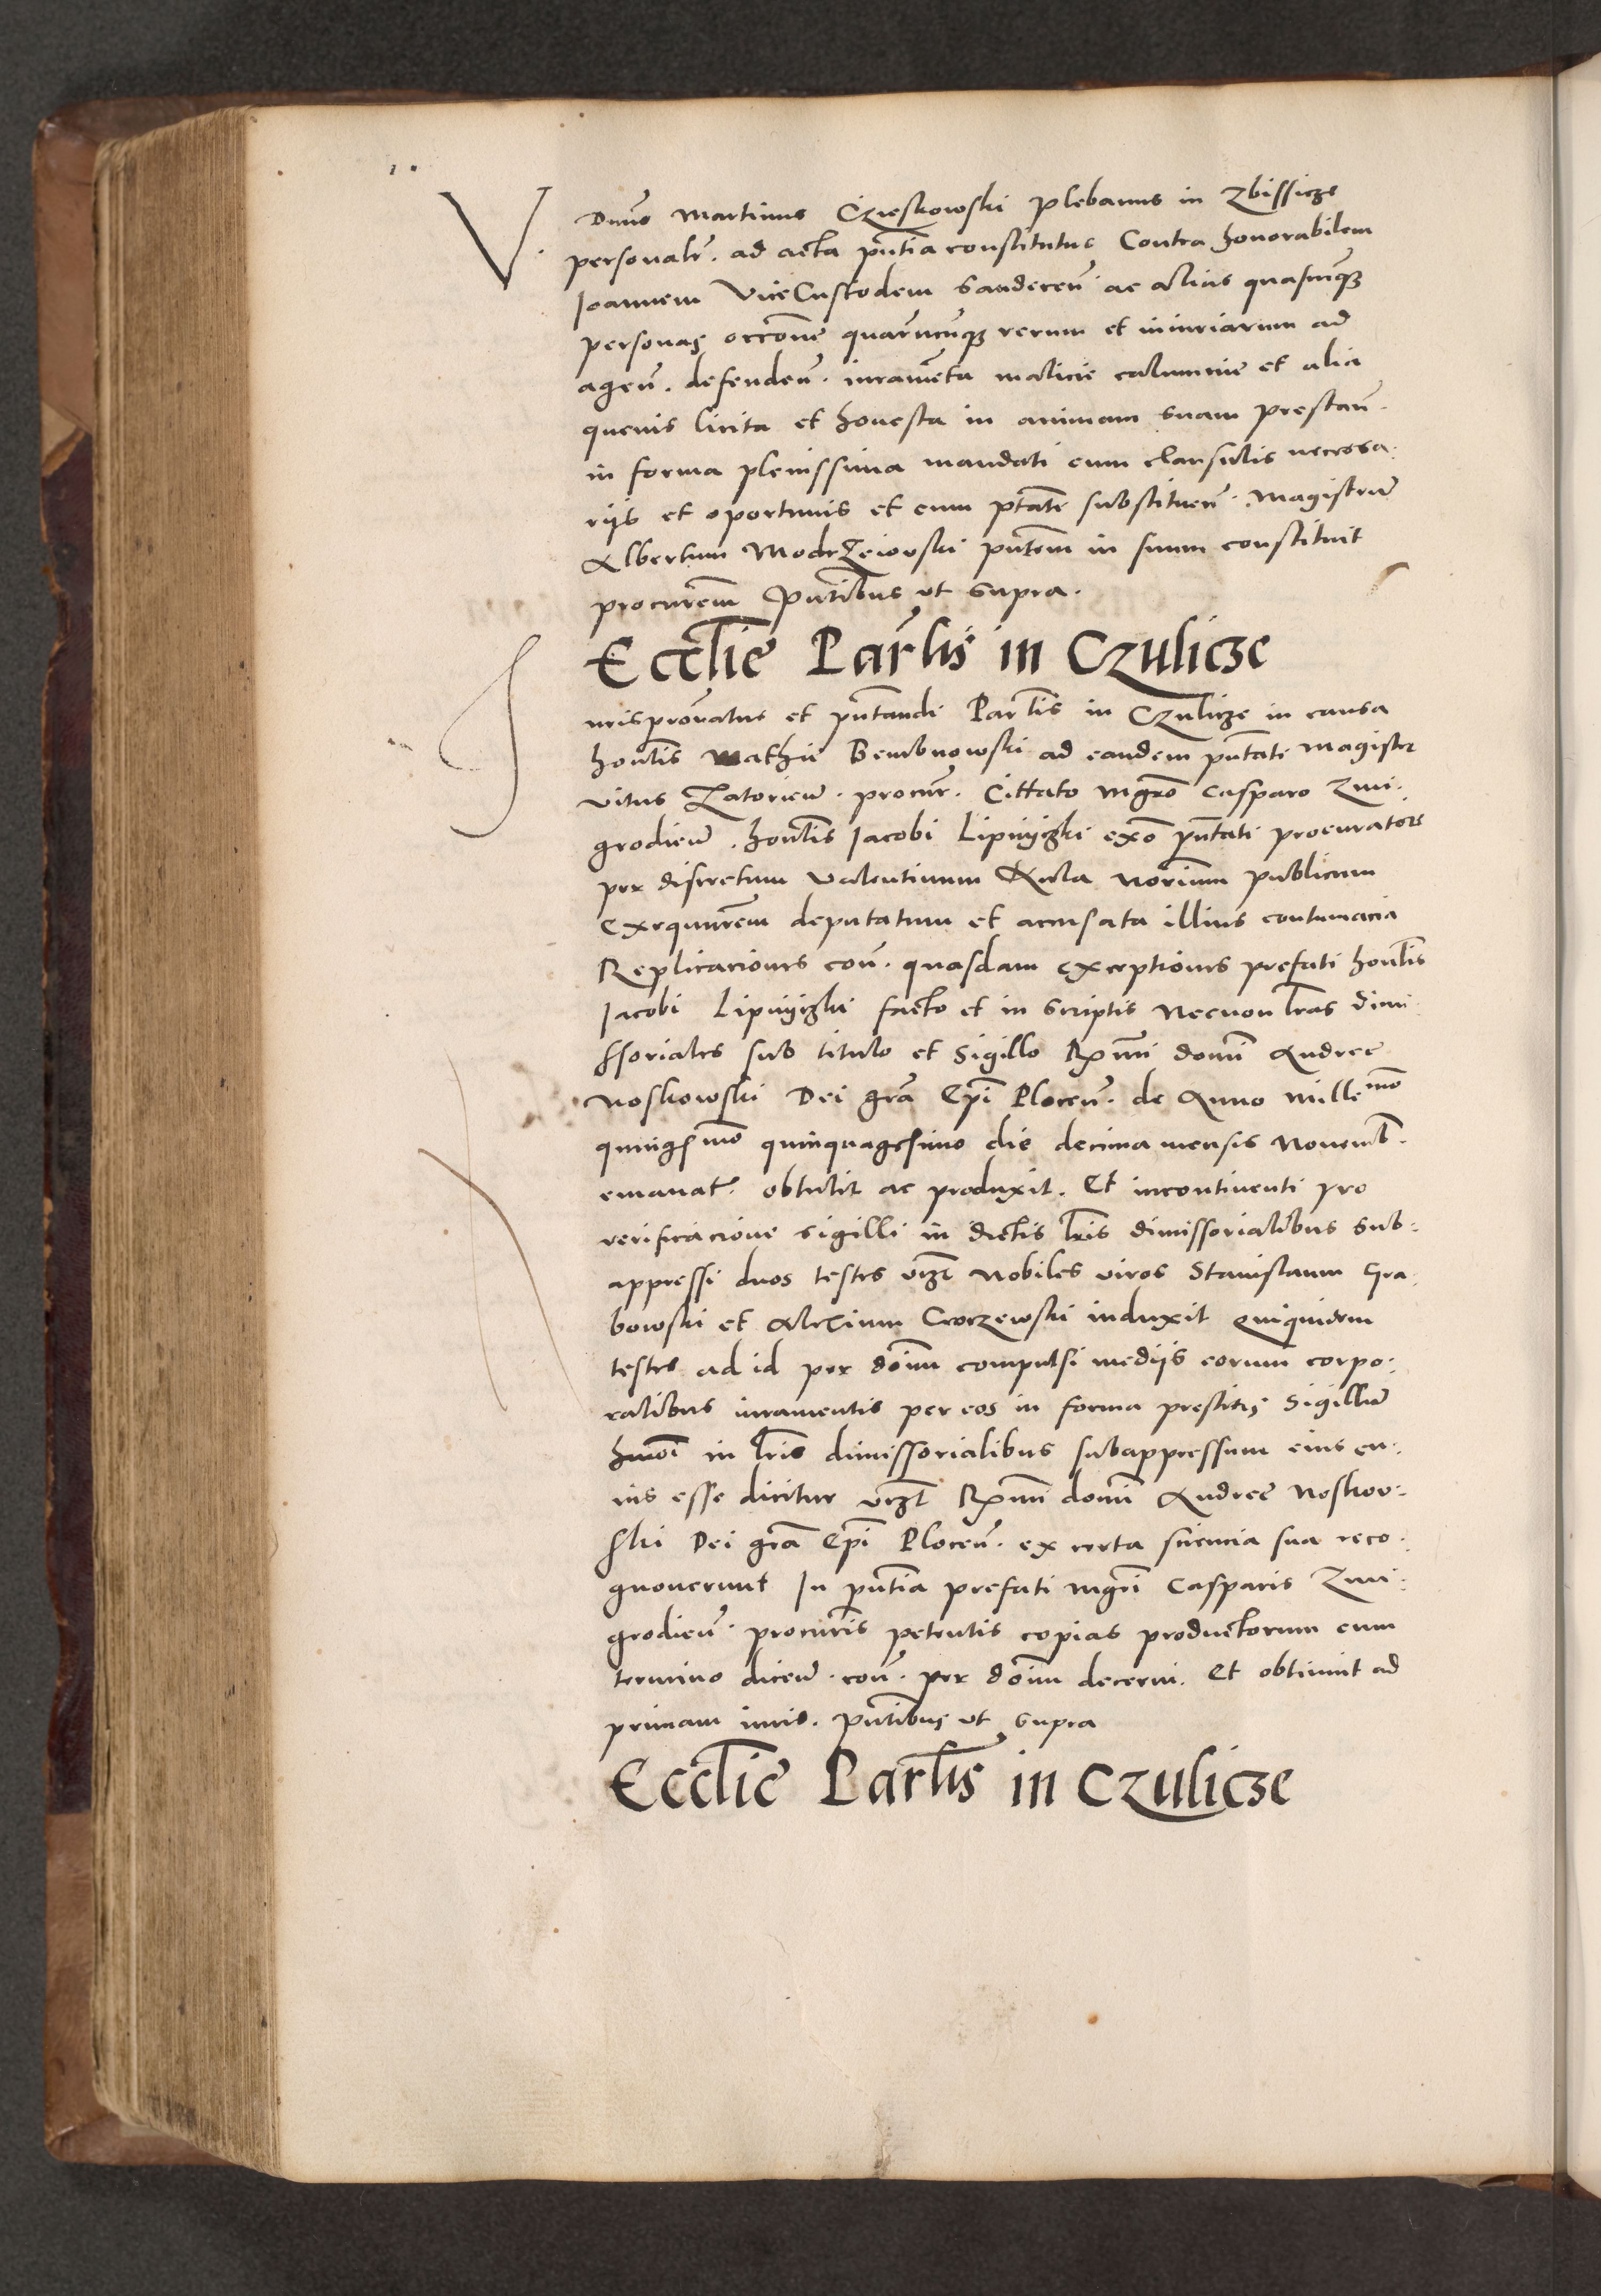 V. Dnus Martinus Czieskowski plebanus in Zbissicze
personalr. ad acta pntia constitutus Contra honorabilem
Ioannem ViceCustodem Sandecen̄. ac alias quascunq3
personas occone quarucunq3 rerum et iniuriarum ad
agen̄. defenden̄. iuramenta malicie calumnie et alia
quevis licita et honesta in animam suam prestan̄.
in forma plenissima mandati cum clausulis necessa:
riis et oportunis et cum ptate substituen̄. Magistrū
Albertum Modrzeiowski pntem in suum constituit
procurem Pntibus ut supra.
Ecclie Parlis in Czulicze
Iurispronatus et pntandi Parlis in Czulicze in causa
honlis Mathie Bembnowski ad eandem pntati Magister
Vitus Zatorien̄. procur. Cittato Mgro Casparo Zmi:
grodien̄. honlis Iacobi Lipnyczki exo pntati procuratore
per discretum Valentinum Kula Norium publicum
Exequutrem deputatum et accusata illius contumacia
Replicaciones con̄. quasdam exceptiones prefati honlis
Iacobi Lipnyczki facto et in scriptis Necnon lras dimi
ssoriales sub titulo et Sigillo Rxmi domi Andree
Noskowski Dei gra Epi Plocen̄. de Anno Millemo
quingsmo quinquagesimo die decima mensis Novemb.
emanat. obtulit ac produxit. Et incontinenti pro
verificacione sigilli in dictis lris dimissorialibus sub:
appressi duos testes vz Nobiles viros Stanislaum Gra:
bowski et Alexium Cworzewski induxit Quiquidem
testes ad id per doim compulsi mediis eorum corpo:
ralibus iuramentis per eos in forma prestitis Sigillū
hmoi in lris dimissorialibus subappressum eius cu:
ius esse dicitur vz Rxmi domi Andree Noskow:
ski Dei gra Epi Plocen̄. ex certa sciencia sua reco:
gnoverunt In pntia prefati Mgri Casparis Zmi:
grodien̄. procuris petentis copias productorum cum
termino dicen̄. con̄. per doim decerni. Et obtinuit ad
primam iuris. Pntibus ut supra
Ecclie Parlis in Czulicze